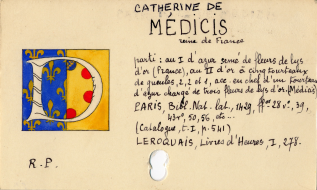 CATHERINE DE
MÉDICIS
reine de France
parti : au I d'azur semé de fleurs de lys
d'or (France), au II d'or à cinq tourteaux
de gueules, 2, 2 et 1, acc. en chef d'un tourteau
d'azur chargé de trois fleurs de lys d'or (Médicis)
PARIS, Bibl. Nat. lat., 1429, ff 28 v., 39,
43 v°, 50, 56, etc...
(Catalogue, t. I, p. 541)
LEROQUAIS, Livres d'Heures, I, 278.
R.P.